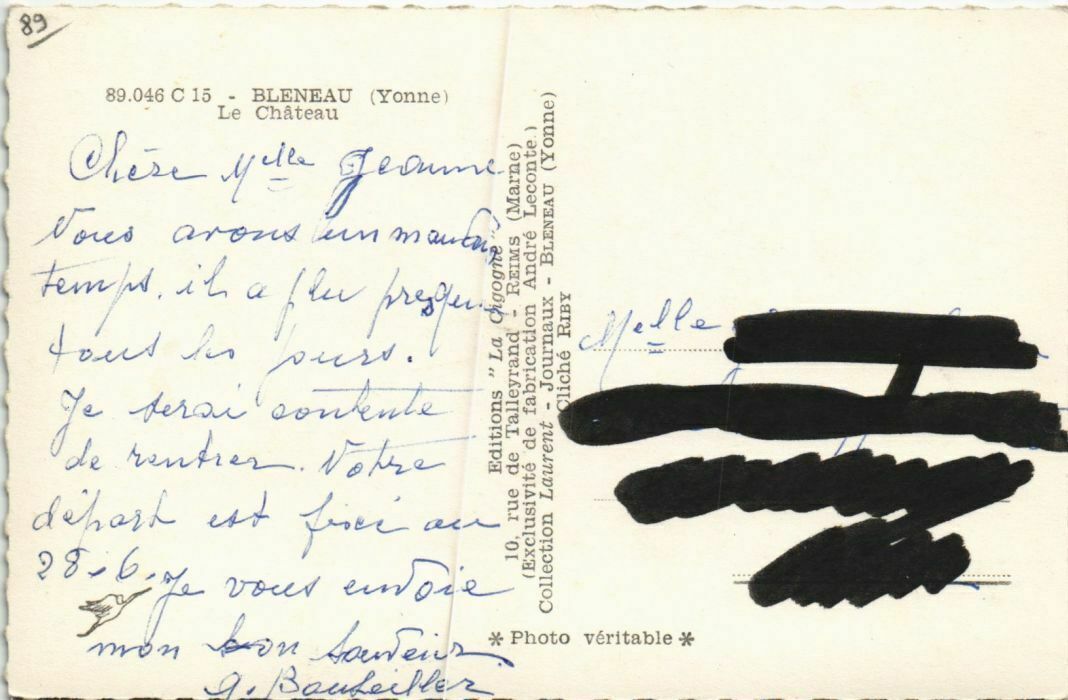 89
89.046 C 15 - BLENEAU (Yonne)
Le Château
Chère Melle Jeanne
Nous avons un mauvais
temps. il a plu presque
tous les jours.
Je serai contente
de rentrer. Notre
départ est fixé au
28.6. Je vous envoie
mon bon souvenir.
Editions "La Cigogne"
10, rue de Talleyrand - REIMS (Marne)
(Exclusivité de fabrication André Leconte.)
Collection Laurent - Journaux - BLENEAU (Yonne)
Cliché RIBY
Melle
* Photo véritable *